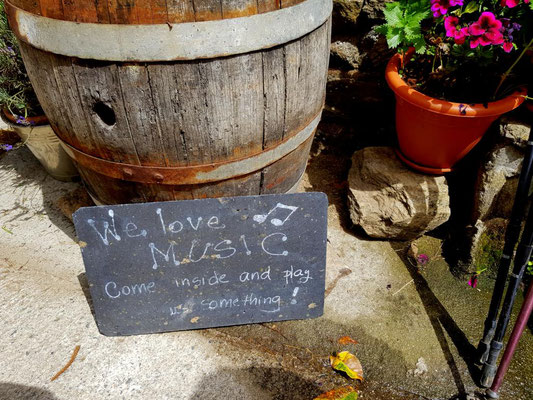 We love
MUSIC
Come inside and play
us something!